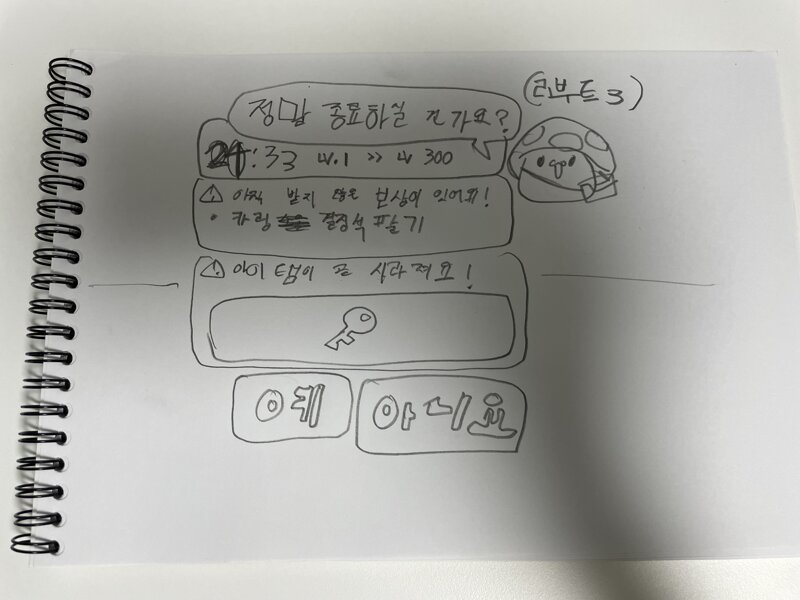 정말 종료하실 건가요?
(리부트3)
24:33 LV.1 >> LV 300
⚠ 아직 받지 않은 보상이 있어요!
• 카링 결정석 팔기
⚠ 아이템이 곧 사라져요!
예 아니요